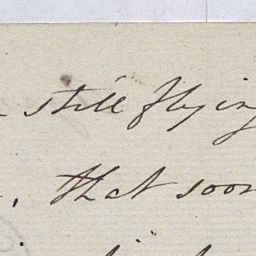 still flying
, that soon